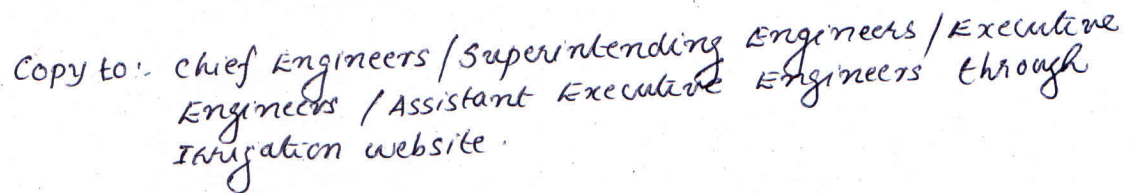 Copy to:- Chief Engineers / Superintending Engineers / Executive
Engineers / Assistant Executive Engineers through
Irrigation website.